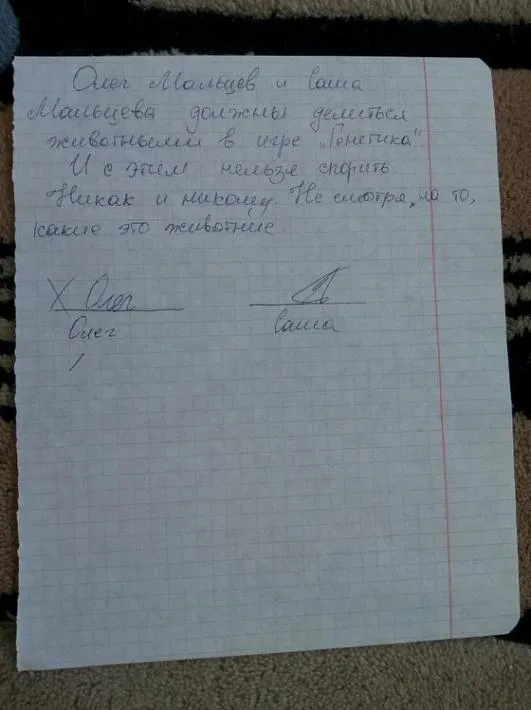 Олег Мальцев и Саша
Мальцева должны делиться
животными в игре „Генетика".
И с этим нельзя спорить
Никак и никому. Не смотря, на то,
какие это животные.
X Олег
Олег Саша